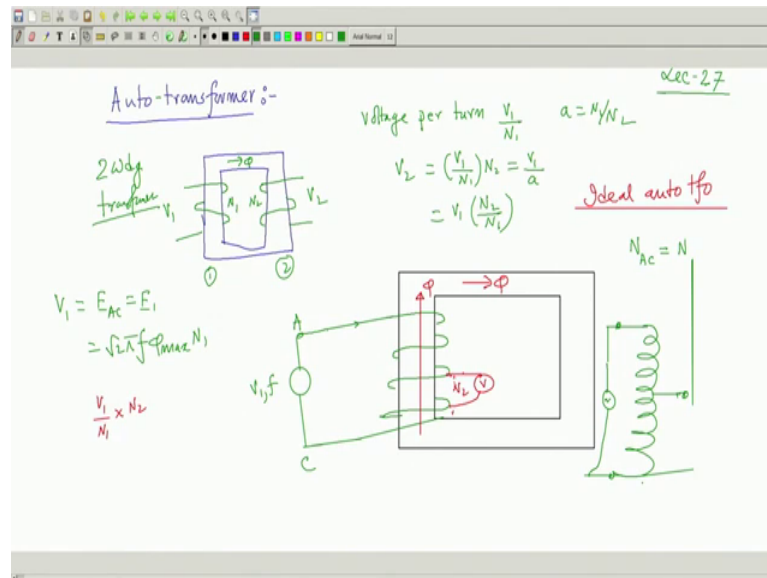 Arial Normal 12
Lec-27
Auto-transformer:-
voltage per turn V₁/N₁ a = N₁/N₂
2 wdg
transfomer
V₁ N₁ N₂ V₂
→φ
① ②
V₂ = (V₁/N₁) N₂ = V₁/a
= V₁ (N₂/N₁)
Ideal auto tfo
N_AC = N
V₁ = E_AC = E₁
= √2 π f φmax N₁
V₁/N₁ × N₂
φ →φ
A
V₁, f
N₂ V
C